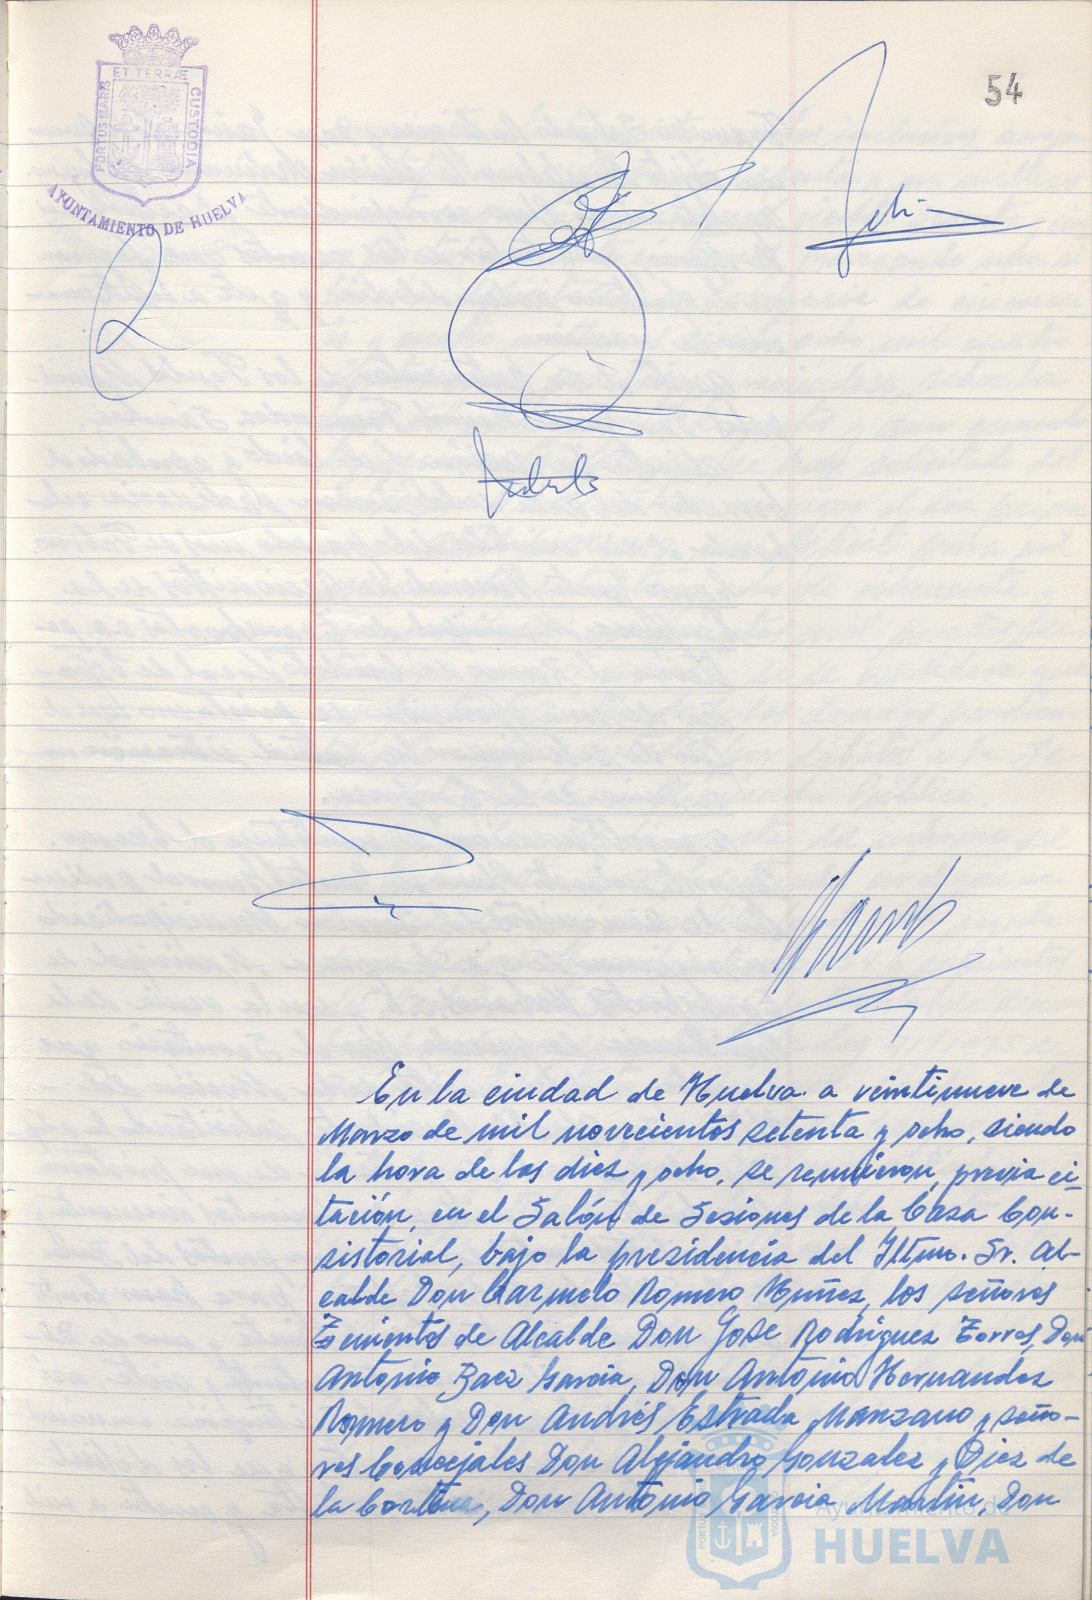 54
ET TERRÆ
PORTUS MARIS
CUSTODIA
AYUNTAMIENTO DE HUELVA
En la ciudad de Huelva a veintinueve de
Marzo de mil novecientos setenta y ocho, siendo
la hora de las diez y ocho, se reunieron, previa ci-
tación, en el Salón de Sesiones de la Casa Con-
sistorial, bajo la presidencia del Iltmo. Sr. Al-
calde Don Carmelo Romero Núñez, los señores
Tenientes de Alcalde Don José Rodriguez Torres, Don
Antonio Baez Garcia, Don Antonio Hernandez
Romero y Don Andrés Estrada Manzano y seño-
res Concejales Don Alejandro Gonzalez y Diez de
la Cortina, Don Antonio Garcia Martín, Don
Ayuntamiento de
HUELVA